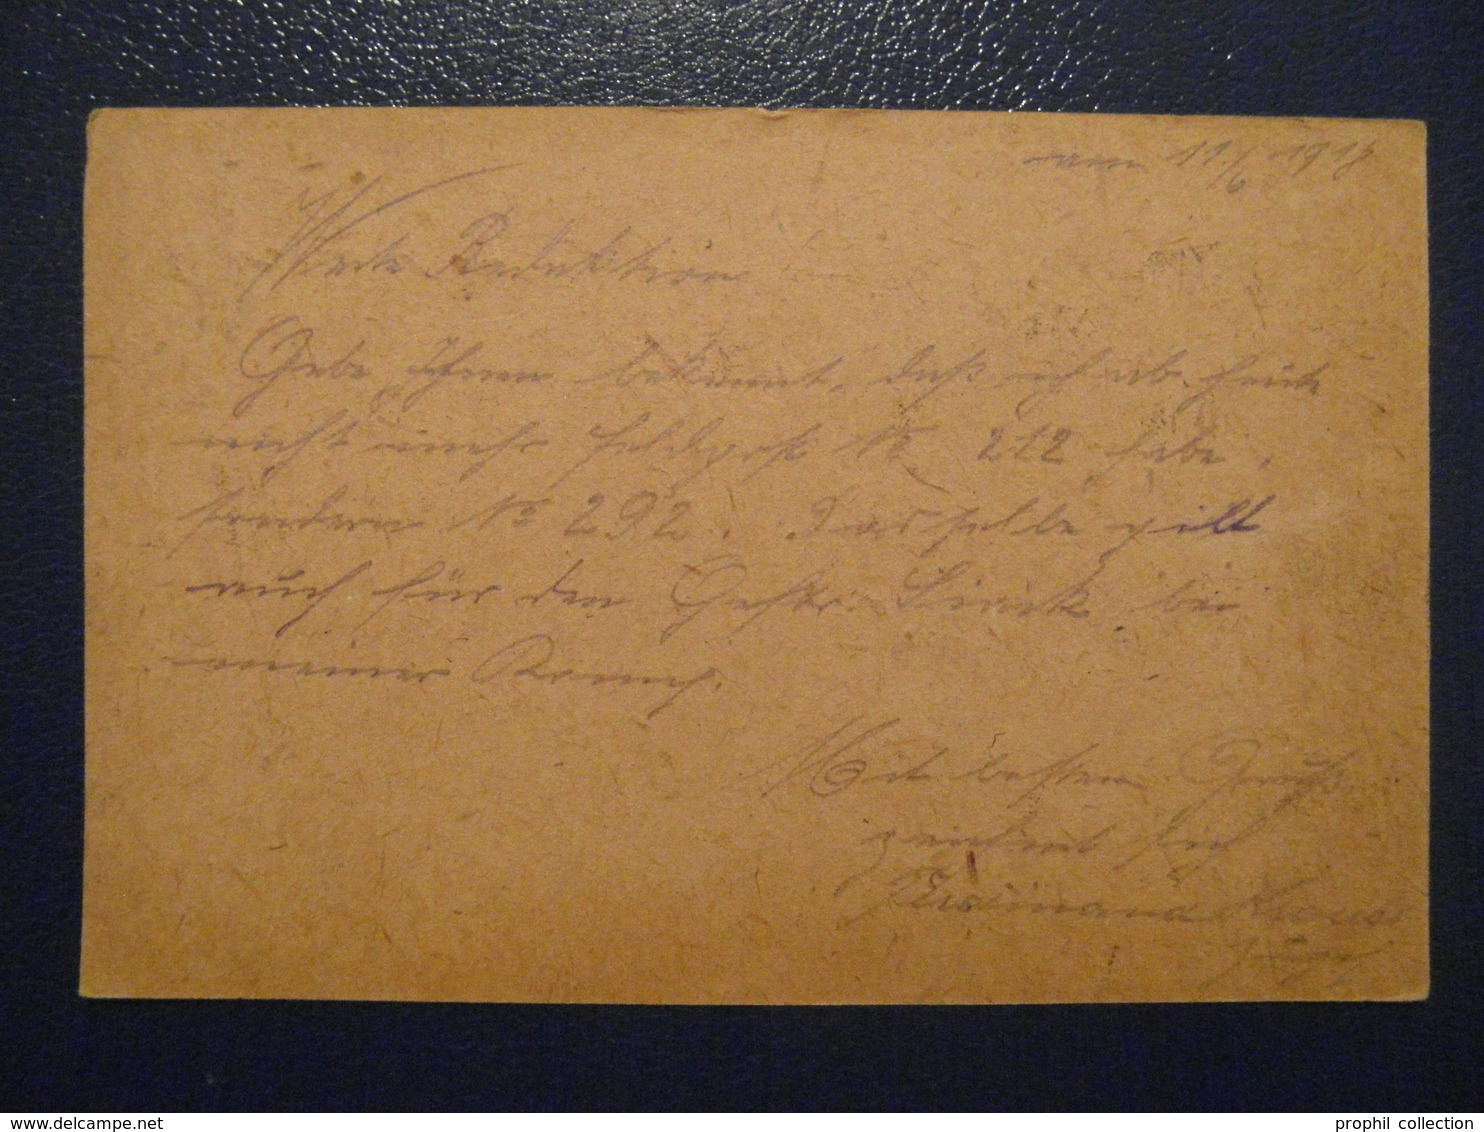 am 11./6 1918
Werte Redaktion
Gebe Ihnen bekannt, daß ich ab heute
nicht mehr Feldpost No 212 habe,
sondern No 292. Dasselbe gilt
auch für den Gefr. bei
meiner Komp.
Mit besten Gruß
zeichnet sich
Ferdinand
prophil collection